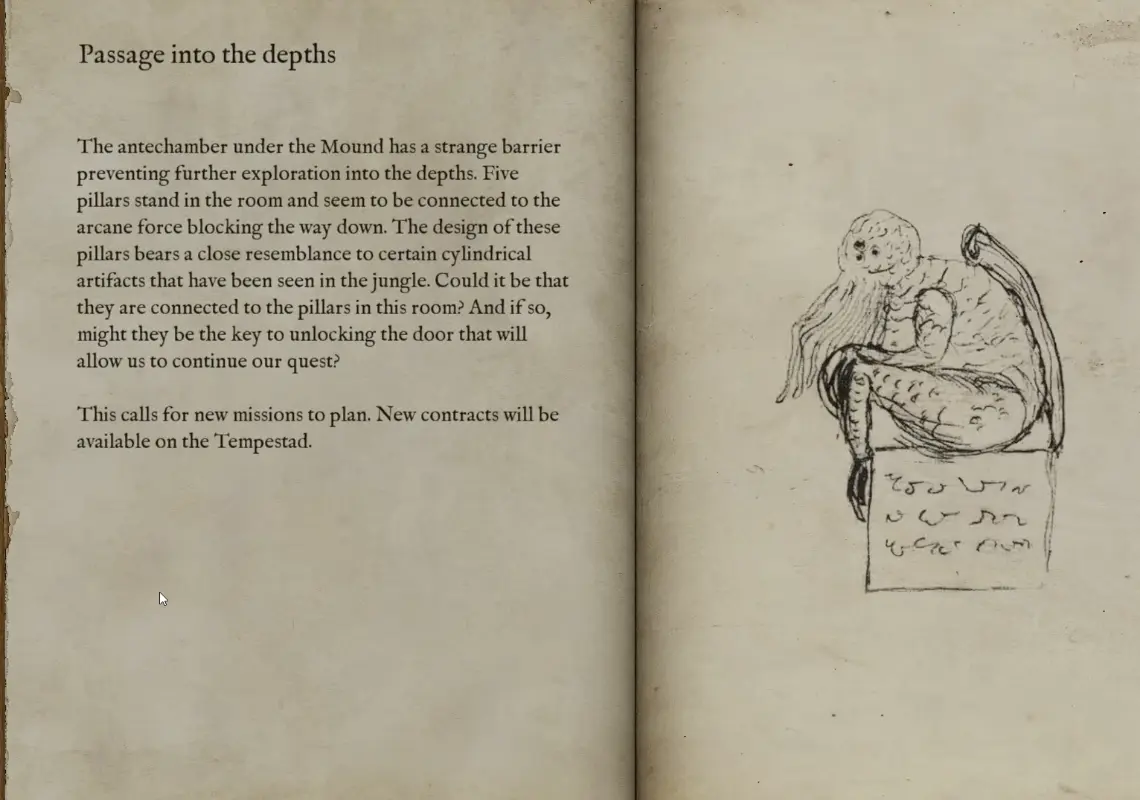 Passage into the depths
The antechamber under the Mound has a strange barrier
preventing further exploration into the depths. Five
pillars stand in the room and seem to be connected to the
arcane force blocking the way down. The design of these
pillars bears a close resemblance to certain cylindrical
artifacts that have been seen in the jungle. Could it be that
they are connected to the pillars in this room? And if so,
might they be the key to unlocking the door that will
allow us to continue our quest?
This calls for new missions to plan. New contracts will be
available on the Tempestad.